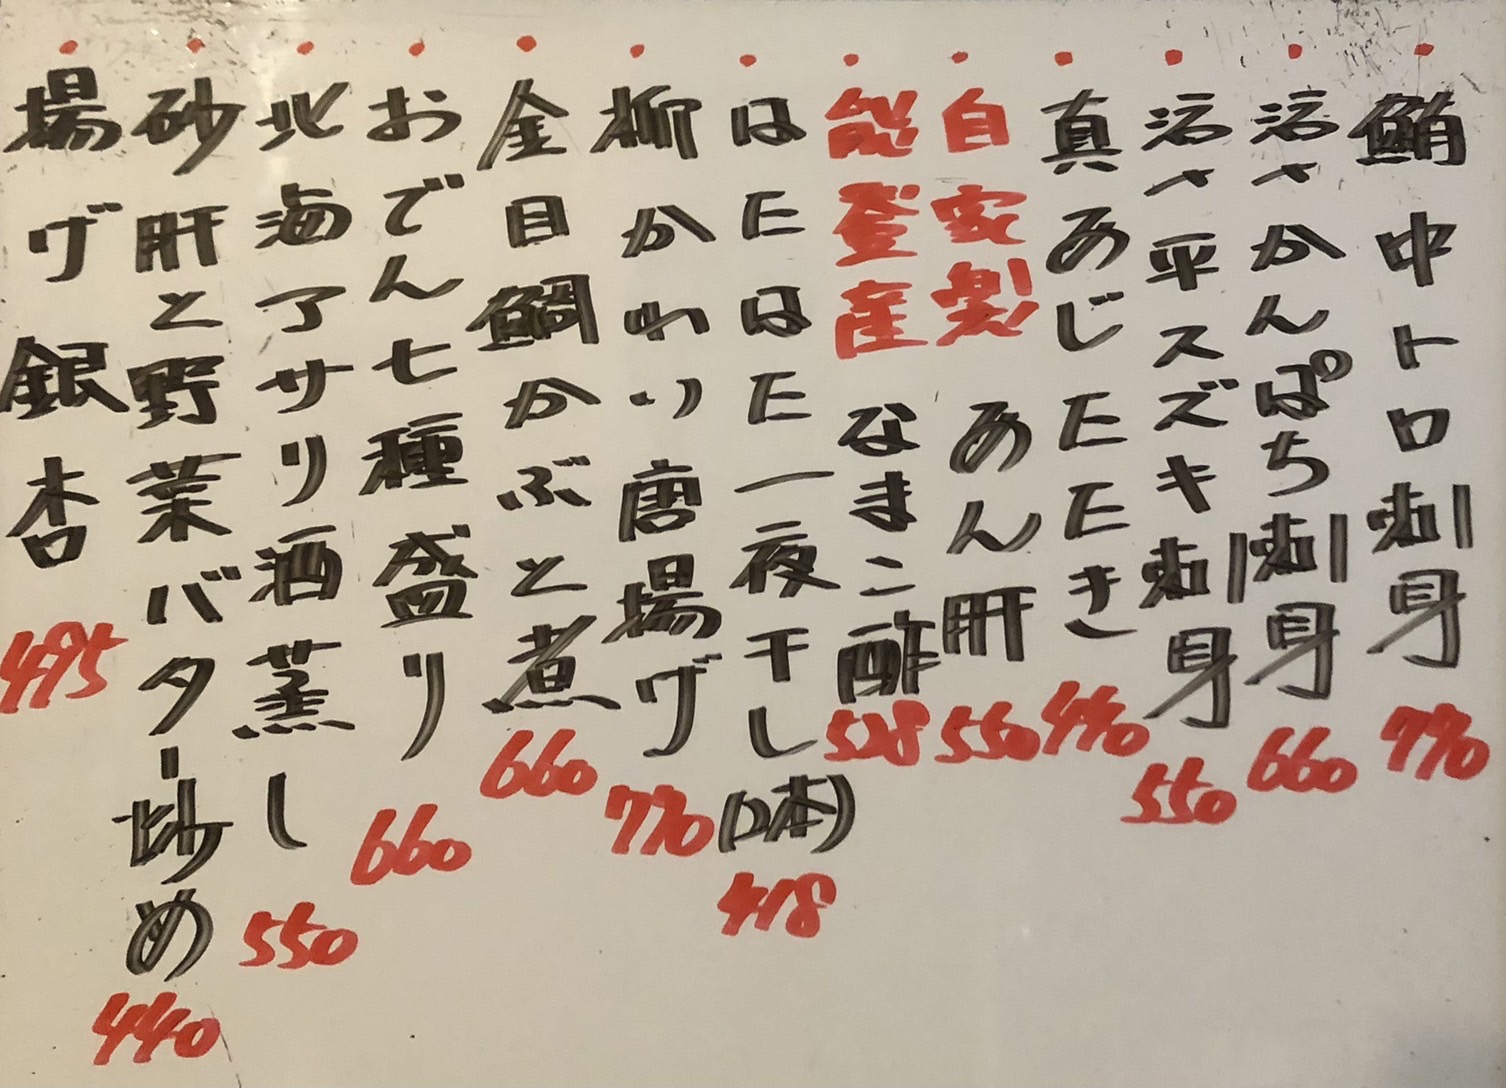 鮪中トロ刺身 770
活〆かんぱち刺身 660
活〆平スズキ刺身 550
真あじたたき 440
自家製 あん肝 550
能登産 なまこ酢 528
はたはた一夜干し(2本) 418
柳かわり唐揚げ 770
金目鯛かぶと煮 660
おでん七種盛り 660
北海アサリ酒蒸し 550
砂肝と野菜バター炒め 440
揚げ銀杏 495